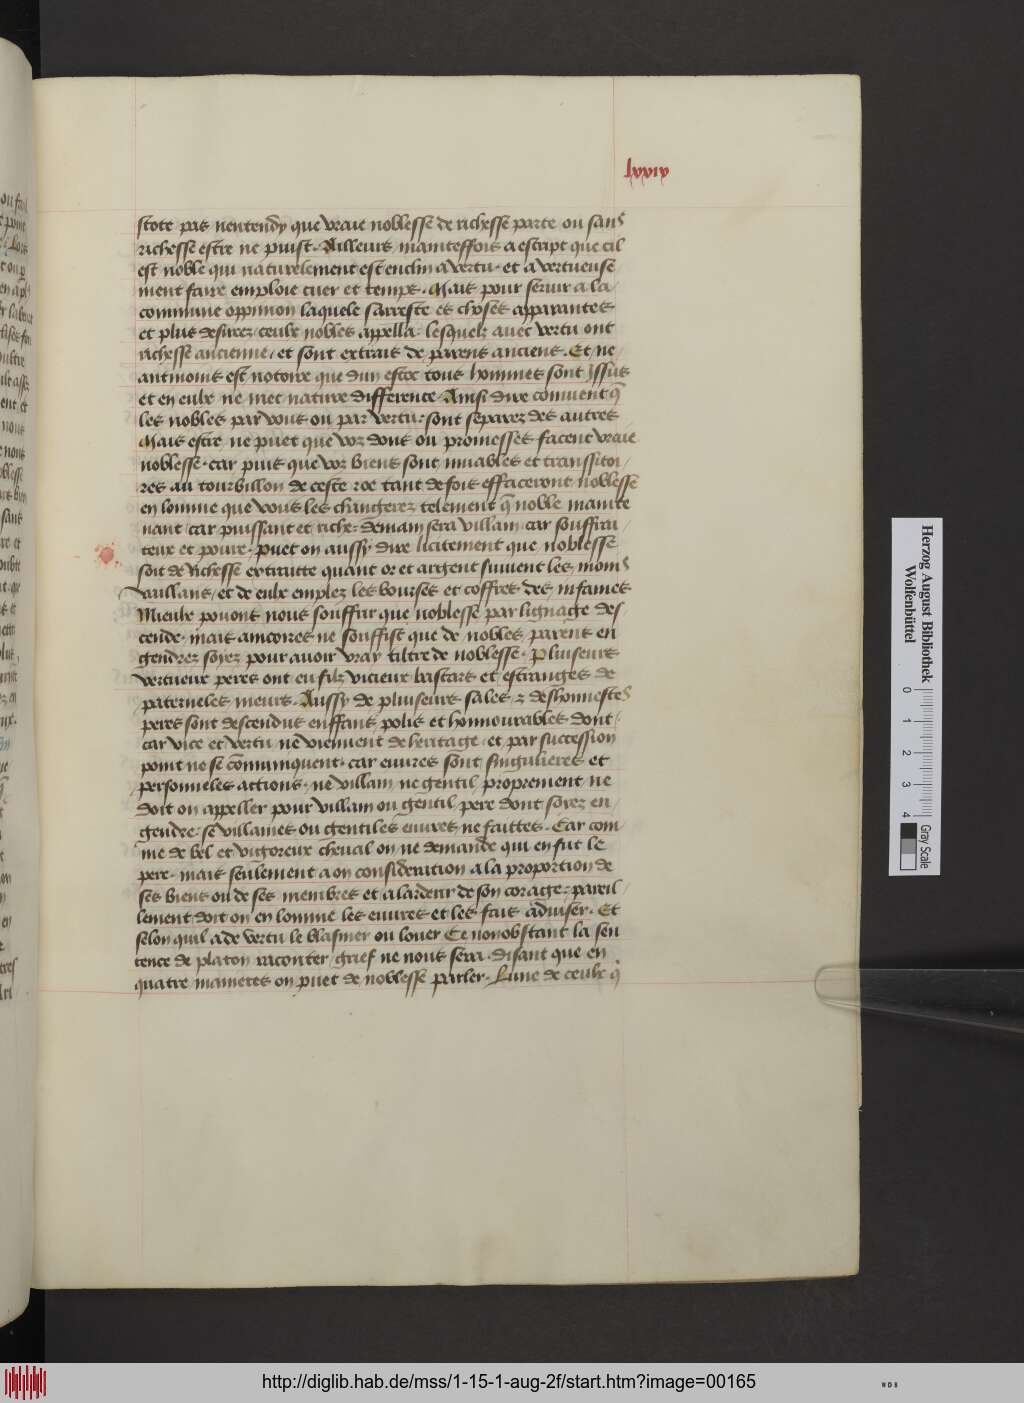 lxxix
stote pas nentendy que vraie noblesse de richesse parte ou sans
richesse estre ne puist. Ailleurs maintesfois a escript que cil
est noble qui naturelement est enclin a vertu. et a vertueuse
ment faire emploie cuer et temps. Mais pour servir a la
commune oppinion laquele sarreste es choses apparantes
et plus desirez ceulx nobles appella. lesquelz avec vertu ont
richesse ancienne. et sont extrais de parens anciens. Et ne
antmoins est notoire que dun estoc tous hommes sont yssus
et en eulx ne mec nature difference. Ainsi dire convient q̄
les nobles par vous ou par vertu: sont separez des autres
Mais estre ne puet que voz dons ou promesses facent vraie
noblesse. car puis que voz biens sont muables et transsitoi/
res au tourbillon de ceste roe tant de fois effaceront noblesse
en lomme que vous les changerez telement q̄ noble mainte
nant car puissant et riche: demain sera villain. car souffrai/
teux et povre. puet on aussy dire licitement que noblesse
soit de richesse extraitte quant or et argent suivent les moins
vaillans, et de eulx emplez les bourses et coffres des infames
Mieulx povons nous souffrir que noblesse par lignage des/
cende. mais aincoires ne souffist que de nobles parens en
gendrez soyez pour avoir vray tiltre de noblesse. Pluiseurs
vertueux peres ont eu filz vicieux bastars et estranges de
paterneles meurs. Aussy de pluiseurs sales et deshonnestes
peres sont descendus enffans polis et honnourables dont/
car vice et vertu ne viennent de heritage. et par succession
point ne se cōmuniquent. car euvres sont singulieres et
personneles actions. ne villain ne gentil proprement ne
doit on appeller pour villain ou gentil pere dont soyez en/
gendre: se villaines ou gentiles euvres ne faittes. Car com/
me de bel et vigoreux cheval on ne demande qui en fut le
pere. mais seulement a on consideration a la proportion de
ses biens ou de ses membres et a lardeur de son corage: pareil/
lement doit on en lomme les euvres et les fais adviser. Et
selon quil a de vertu le blasmer ou louer Et nonobstant la sen
tence de platon raconter grief ne nous sera. disant que en
quatre manieres on puet de noblesse parler. Lune de ceulx q̄
Herzog August Bibliothek
Wolfenbüttel
0 1 2 3 4
Gray Scale
http://diglib.hab.de/mss/1-15-1-aug-2f/start.htm?image=00165
WDB